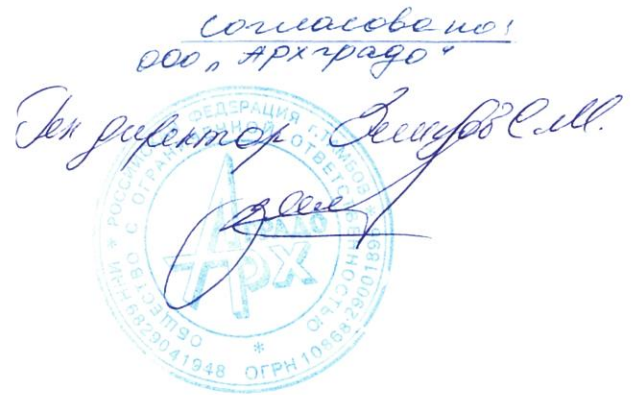 Согласовано:
ООО „Архградо"
Ген директор С.М.
РОССИЙСКАЯ ФЕДЕРАЦИЯ Г.ТАМБОВ
ОБЩЕСТВО С ОГРАНИЧЕННОЙ ОТВЕТСТВЕННОСТЬЮ
ГРАДО
Арх
ИНН 6829041948 * ОГРН